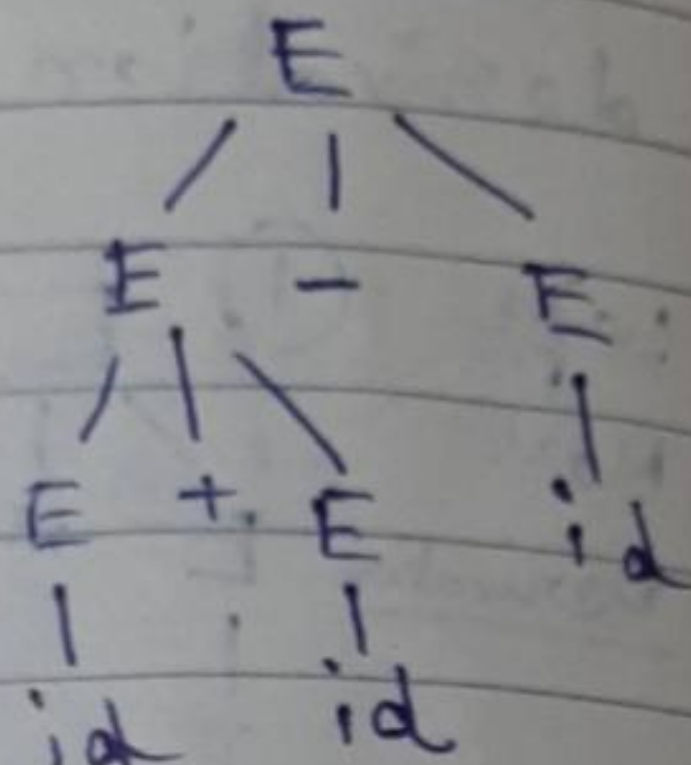 E
E - E
E + E id
id id